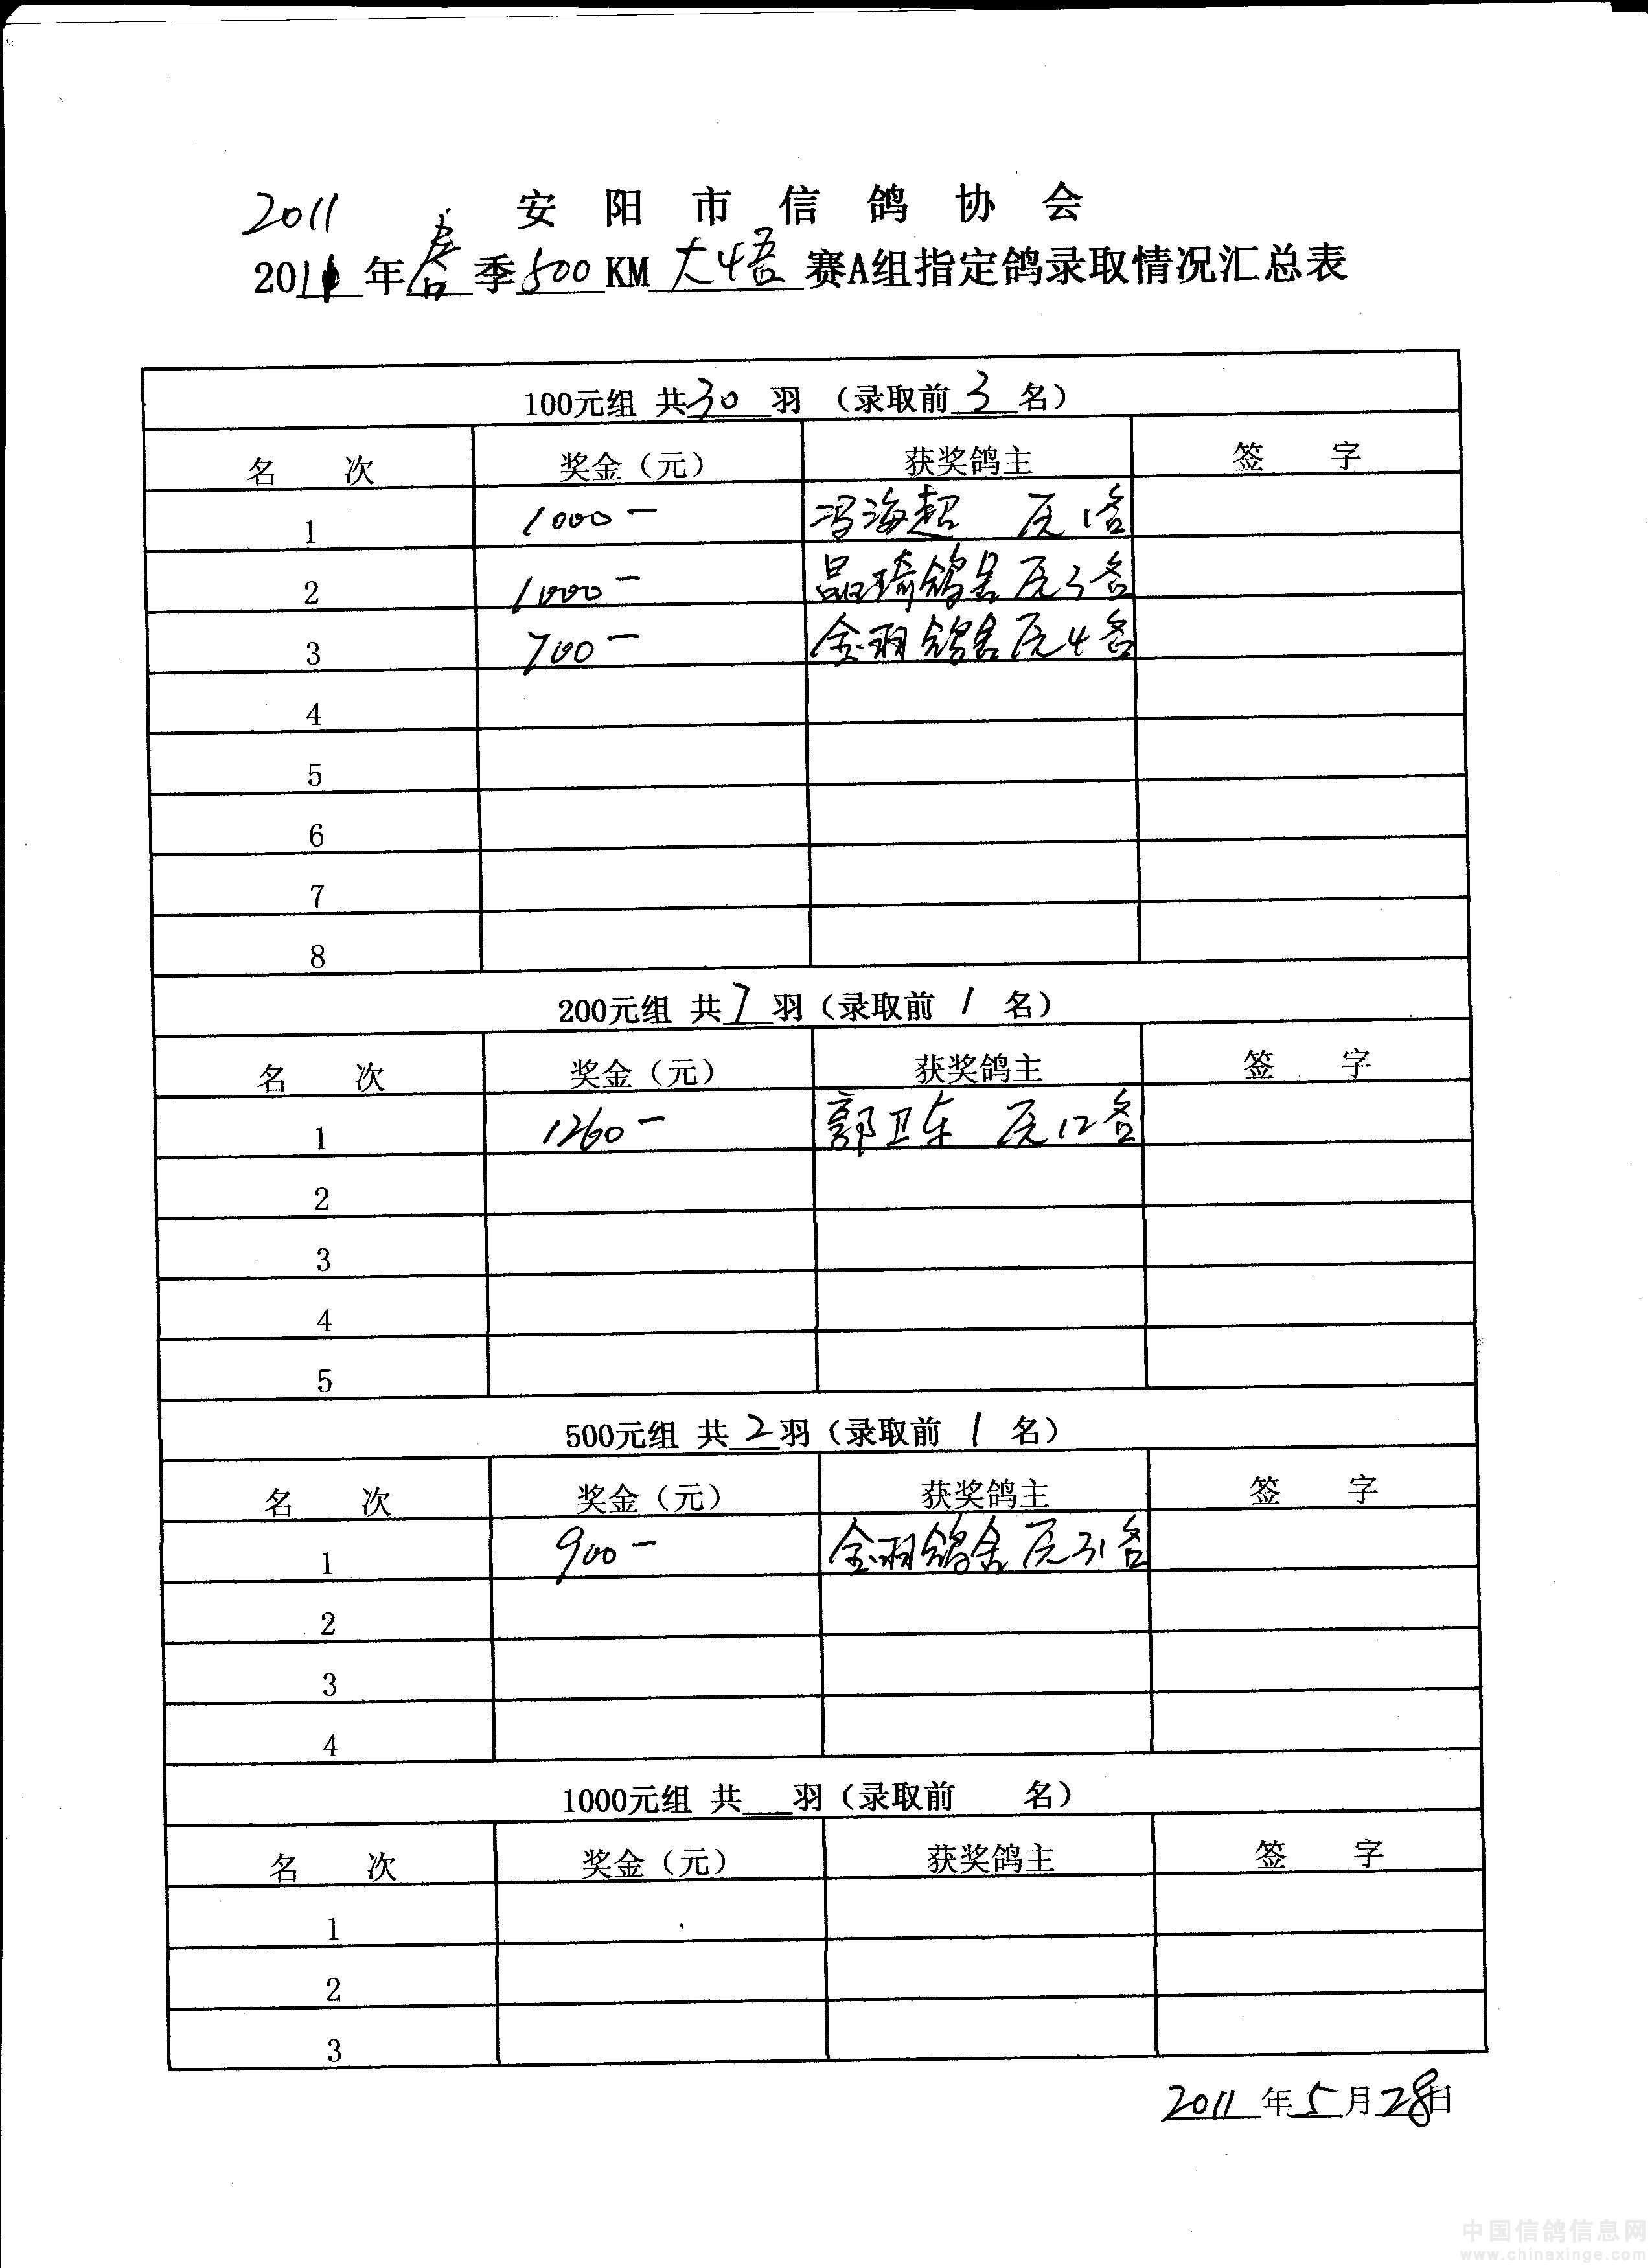 2011 安阳市信鸽协会
2011年春季500KM大悟赛A组指定鸽录取情况汇总表
100元组 共30羽 （录取前3名）
名 次 奖金（元） 获奖鸽主 签 字
1 1000- 冯海超  1名
2 1000- 晶琦鸽舍 3名
3 700- 金羽鸽舍 4名
4
5
6
7
8
200元组 共7羽（录取前 1 名）
名 次 奖金（元） 获奖鸽主 签 字
1 1260- 郭卫东 12名
2
3
4
5
500元组 共2羽（录取前 1 名）
名 次 奖金（元） 获奖鸽主 签 字
1 900- 金羽鸽舍 31名
2
3
4
1000元组 共__羽（录取前 名）
名 次 奖金（元） 获奖鸽主 签 字
1
2
3
2011年5月28日
中国信鸽信息网
www.chinaxinge.com